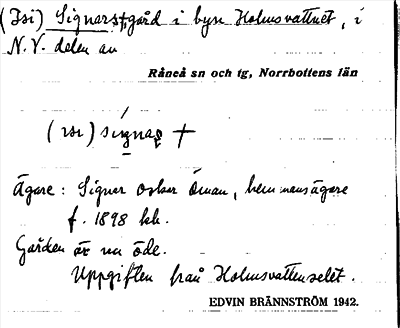 (Isi) Signers gård i byn Holmsvattnet, i
N.V. delen av
Råneå sn och tg, Norrbottens län
(isi) signaṣ +
Ägare: Signer Oskar Öman, hemmansägare
f. 1898 hh.
Gården är nu öde.
Uppgiften från Holmsvattenselet.
EDVIN BRÄNNSTRÖM 1942.